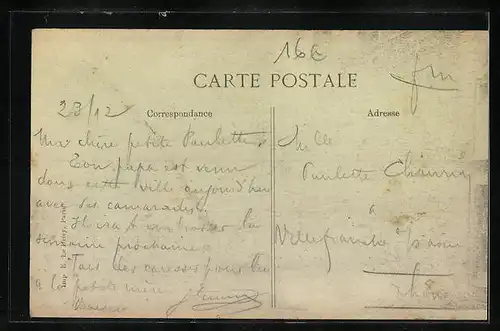 16€
CARTE POSTALE
fm
23/12
Correspondance
Adresse
Ma chère petite Paulette
Ton papa est venu
dans cette ville aujourd'hui
avec ses camarades.
la
semaine prochaine
Tous les caresses pour toi
à la petite mère
Melle
Paulette
à
Villefranche s/ Saône
Rhône
Imp. E. Le Deley, Paris